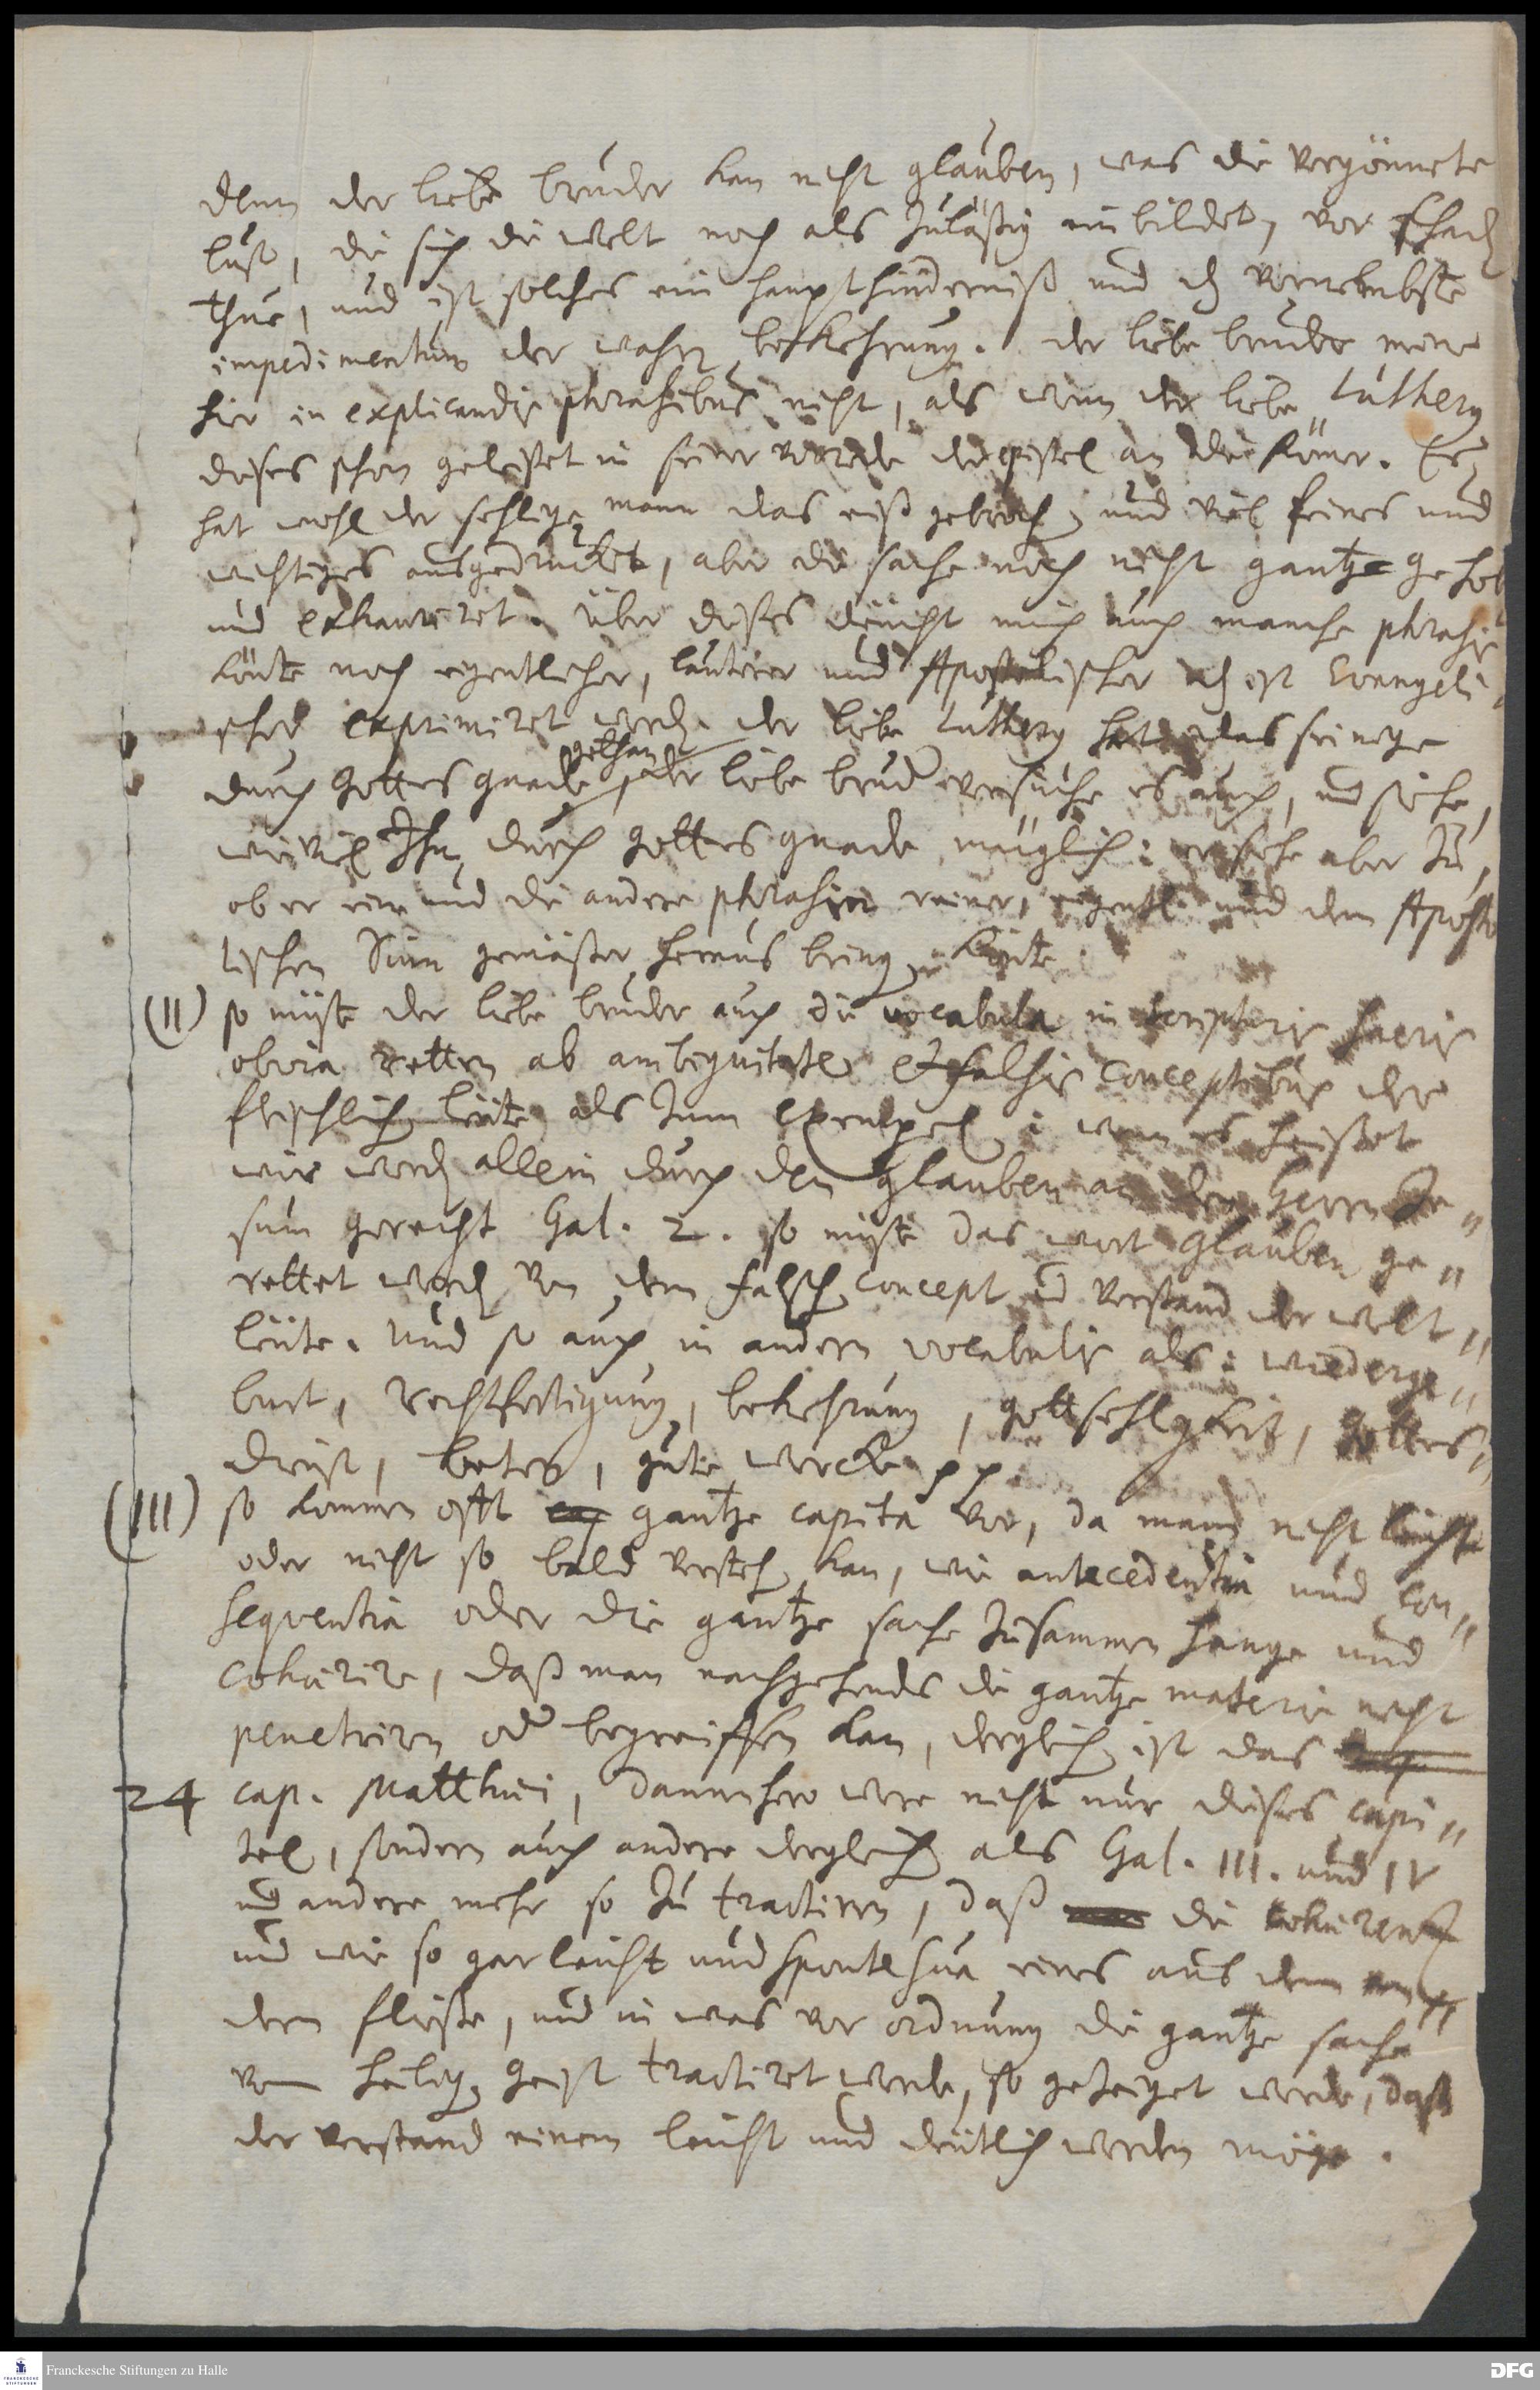 denn der liebe bruder kan nicht glauben, was die vergönnete
lust, die sich die welt noch als zuläßig einbildet, vor schad
thue, und ist solches ein haupthinderniß und d vornembste
impedimentum der wahren bekehrung. der liebe bruder meine
hier in explicandis phrasibus nicht, als wenn der liebe Lutherus
dieses schon geleistet in seiner vorrede der epistel an die Römer. Es
hat wohl der sehlige mann das eiß gebroch, und viel feines und
wichtiges ausgedrucket, aber die sache noch nicht gantz gehob
und exhauriret. über dieses deucht mich auch manche phrasis
könte noch eigentlicher, lauterer und Apostolischer d ist Evangeli
scher exprimiret werd. der liebe Lutherus hat das seinige
gethan
durch Gottes gnade, der liebe brud versuche es auch, und sehe,
wie viel Ihm durch Gottes gnade müglich: er sehe aber zu,
ob er eine und die andere phrasin reiner, eigentl. und dem Aposto
lischen Sinn gemäßer heraus bring könte.
(II) so müste der liebe bruder auch die vocabula in scripturis sacris
obvia retten ab ambiguitate et falsis conceptibus der
fleischlich leute als zum exempel: wenn es heisset
wir werd allein durch den glauben an den Herrn Je„
sum gerecht Gal. 2. so müste das wort glauben ge„
rettet werd von dem falsch concept und verstand der welt„
leute. Und so auch in andern vocabulis als: wiederge„
burt, rechtfertigung, bekehrung, gottsehligkeit, gottes„
dienst, beten, gute wercke pp.
(III) so kommen offt cap gantze capita vor, da man nicht leicht
oder nicht so bald versteh kan, wie antecedentia und con„
sequentia oder die gantze sache zusammen hange und
cohærire, daß man nachgehends die gantze materie nicht
penetriren od begreiffen kan, dergleich ist das
24 cap. Matthæi, dannenhero were nicht nur dieses capi„
tel, sondern auch andere dergleich als Gal. III. und IV
und andere mehr so zu tractiren, daß die cohærentz
und wie so gar leicht und sponte sua eines aus dem an„
dern fließe, und in was vor ordnung die gantze sache
vom heilig Geist tractiret werde, so gezeiget werde, daß
der verstand einem leicht und deutlich werden möge.
Franckesche Stiftungen zu Halle
FRANCKESCHE STIFTUNGEN
DFG